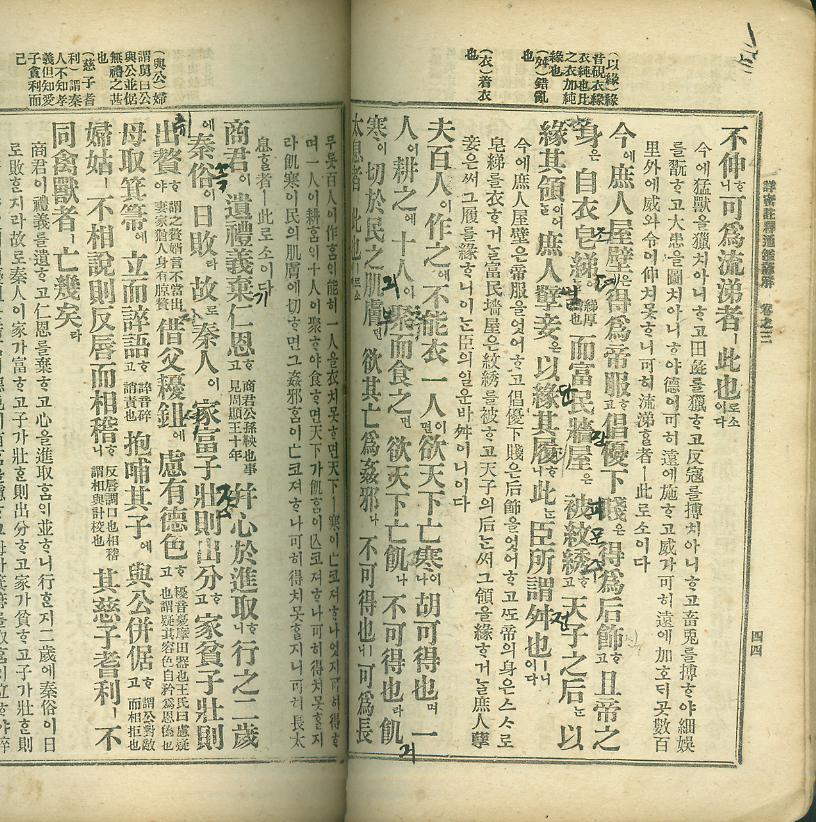 詳密註釋通鑑諺解 卷之三
四四
(以緣)緣
(舛)錯亂
也
(衣)着衣
也
不伸ᄒᆞ니可爲流涕者ㅣ此也ㅣ로소이다
今에猛獸을獵치아니ᄒᆞ고田彘를獵ᄒᆞ고反寇를搏치아니ᄒᆞ고畜兎를搏ᄒᆞ야細娛
를翫ᄒᆞ고大患을圖치아니ᄒᆞ야德이可히遠에施ᄒᆞ고威가可히遠에加호ᄃᆡ못數百
里外에威와令이伸치못ᄒᆞ니可히流涕ᄒᆞᆯ者ㅣ此로소이다
今에庶人屋壁은得爲帝服ᄒᆞ고倡優下賤은得爲后飾ᄒᆞ고且帝之
身은自衣皂綈而富民牆屋은被紋綉ᄒᆞ고天子之后는以
緣其領이어ᄂᆞᆯ庶人孼妾은以緣其履ᄒᆞ니此ㅣ臣所謂舛也ㅣ니이다
今에庶人屋壁은帝服을엇어ᄒᆞ고倡優下賤은后飾을엇어ᄒᆞ고ᄯᅩ帝의身은스스로
皂綈를衣ᄒᆞ거ᄂᆞᆯ富民墻屋은紋綉를被ᄒᆞ고天子의后는ᄡᅥ그領을緣ᄒᆞ거ᄂᆞᆯ庶人孽
妾은ᄡᅥ그履를緣ᄒᆞ니이ᄂᆞᆫ臣의일은바舛이니이다
夫百人이作之에不能衣一人이면欲天下亡寒이나胡可得也며一
人이耕之에十人이聚而食之면欲天下亡飢나不可得也라飢
寒이切於民之肌膚면欲其亡爲姦邪나不可得也ㅣ니可爲長
太息者ㅣ此也ㅣ로소이다
(與公)婦
謂舅曰公
與公並倨
無禮之甚
也
(慈子耆
利)謂秦
人不知孝
義但知愛
子貪利而
己
무릇百人이作홈이能히一人을衣치못ᄒᆞ면天下ㅣ寒이亡코져ᄒᆞ나엇지可히得ᄒᆞ
며一人이耕홈이十人이聚ᄒᆞ야食ᄒᆞ면天下가飢홈이亡코져ᄒᆞ나可히得치못ᄒᆞᆯ지
라飢寒이民의肌膚에切ᄒᆞ면그姦邪홈이亡코져ᄒᆞ나可히得치못ᄒᆞᆯ지니可히長太
息ᄒᆞᆯ者ㅣ此로소이다
商君이遺禮義棄仁恩ᄒᆞ고商君公孫鞅也事見周顯王十年幷心於進取ᄒᆞ니行之二歲
에秦俗이日敗라故로秦人이家富子壯則出分ᄒᆞ고家貧子壯則
出贅ᄒᆞ야借父耰鉏에慮有德色ᄒᆞ고
母取箕箒에立而誶語ᄒᆞ고抱哺其子에與公倂倨ᄒᆞ고
婦姑ㅣ不相說則反唇而相稽ᄒᆞ니其慈子耆利ㅣ不
同禽獸者ㅣ亡幾矣라
商君이禮義를遺ᄒᆞ고仁恩를棄ᄒᆞ고心을進取홈이並ᄒᆞ니行ᄒᆞᆫ지二歲에秦俗이日
로敗ᄒᆞᆫ지라故로秦人이家가富ᄒᆞ고子가壯ᄒᆞᆫ則出分ᄒᆞ고家가貧ᄒᆞ고子가壯ᄒᆞᆫ則